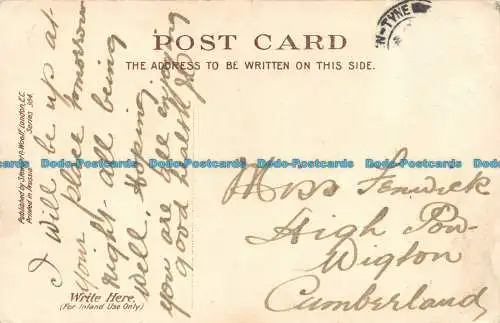 POST CARD
THE ADDRESS TO BE WRITTEN ON THIS SIDE.
N-TYNE
Published by Stewart & Woolf, London, E.C.
Series 304.
Printed in Prussia
I will be up at
your place tomorrow
night all being
well. Hoping
you are all enjoying
good health
Write Here.
(For Inland Use Only)
Miss Fenwick
High Pow
Wigton
Cumberland
Dodo-Postcards Dodo-Postcards Dodo-Postcards Dodo-Postcards Dodo-Postcards Dodo-Postcards